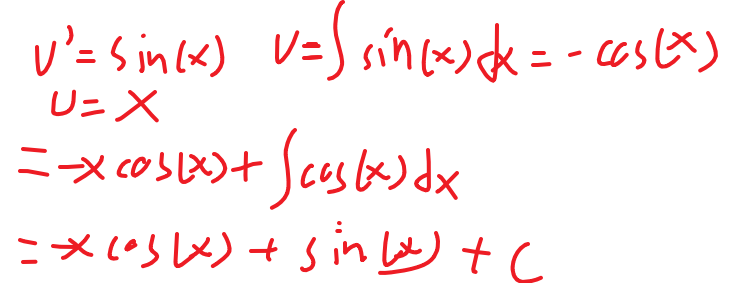 v'=sin(x) v=∫sin(x)dx=-cos(x)
u=x
=-xcos(x)+∫cos(x)dx
=-xcos(x)+sin(x)+C